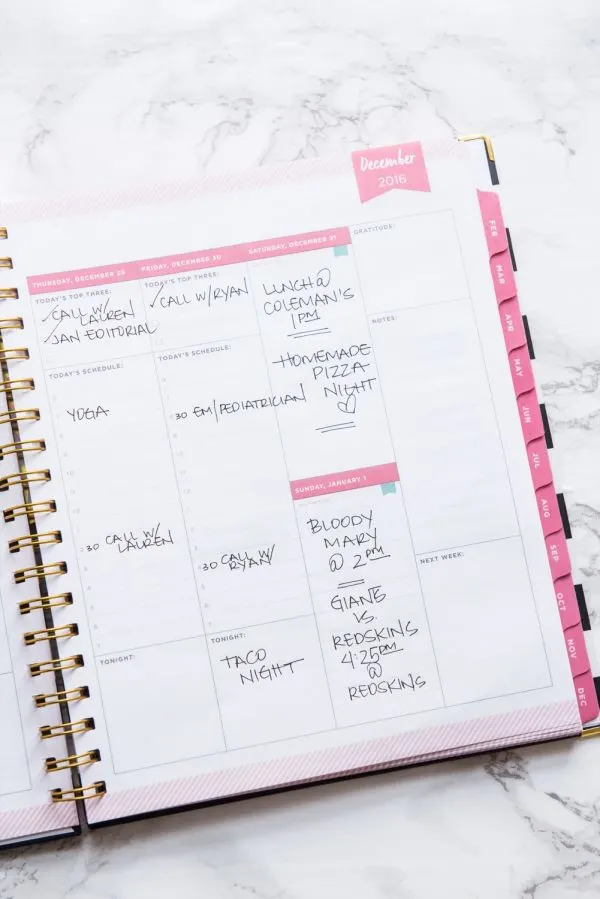 December
2016
THURSDAY, DECEMBER 29
TODAY'S TOP THREE:
CALL W/
LAUREN
JAN EDITORIAL
TODAY'S SCHEDULE:
YOGA
30 CALL W/
LAUREN
TONIGHT:
FRIDAY, DECEMBER 30
TODAY'S TOP THREE:
CALL W/RYAN
TODAY'S SCHEDULE:
30 EM/PEDIATRICIAN
30 CALL W/
RYAN
TONIGHT:
TACO
NIGHT
SATURDAY, DECEMBER 31
LUNCH @
COLEMAN'S
1PM
HOMEMADE
PIZZA
NIGHT
SUNDAY, JANUARY 1
BLOODY
MARY
@ 2PM
GIANTS
VS.
REDSKINS
4:25PM
@
REDSKINS
GRATITUDE:
NOTES:
NEXT WEEK:
FEB
MAR
APR
MAY
JUN
JUL
AUG
SEP
OCT
NOV
DEC